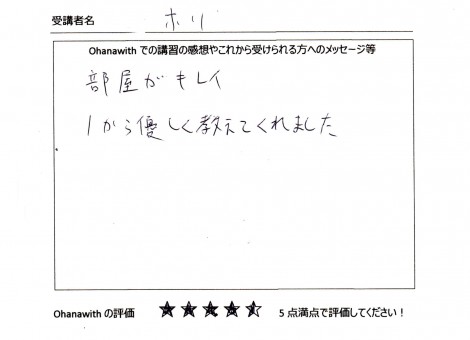 受講者名 ホリ
Ohanawith での講習の感想やこれから受けられる方へのメッセージ等
部屋がキレイ
1から優しく教えてくれました
Ohanawith の評価 ★★★★★ 5 点満点で評価してください！